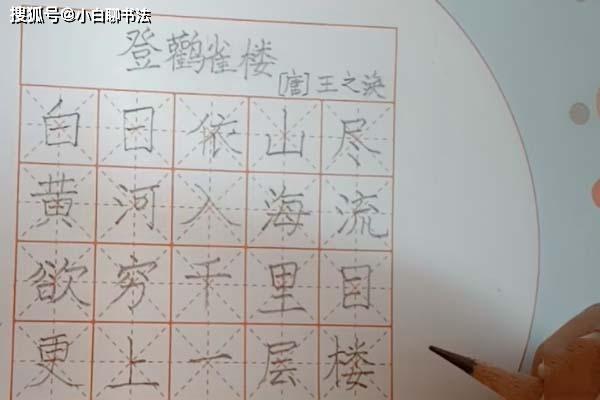 搜狐号@小白聊书法
登鹳雀楼
[唐]王之涣
白日依山尽
黄河入海流
欲穷千里目
更上一层楼